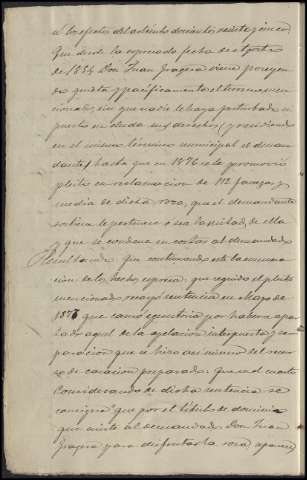 a los efectos del artículo doscientos veinte y cinco
Que desde la expresada fecha de Agosto
de 1854 Don Juan Gragera viene poseyen
do quieta y pacíficamente el terreno men
cionado, sin que nadie le haya perturbado ni
puesto en duda su derecho, y residiendo
en el mismo término municipal el deman
dante, hasta que en 1876 se le promovió
pleito en reclamacion de 112 fanegas y
media de dicha roza, que el demandante
sostiene le pertenecen o sea la mitad, de ella
y que se condene en costas al demandado
Resultando: que continuando esta
de los hechos expresa: que seguido el pleito
mencionado recayó sentencia en Mayo de
1877 que causó ejecutoria por haberse apar
tado aquel de la apelacion interpuesta y se
paracion que se hizo así mismo del recur
so de casacion preparado: que en el cuarto
Considerando de dicha sentencia se
consigna que por el título de dominio
que asiste al demandado Don Juan
Gragera para disfrutar la roza aparece